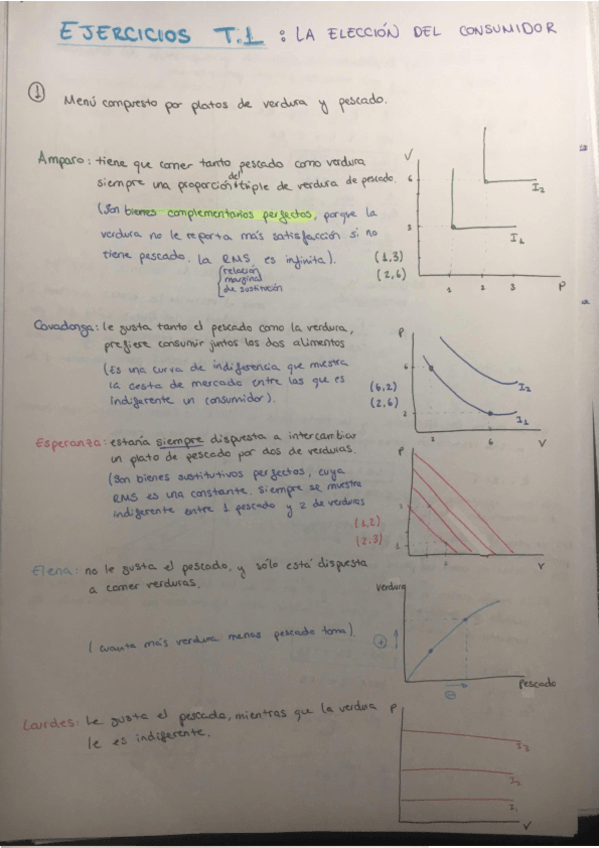 EJERCICIOS T.1 : LA ELECCIÓN DEL CONSUMIDOR
① Menú compuesto por platos de verdura y pescado.
Amparo: tiene que comer tanto pescado como verdura
siempre una proporción del triple de verdura de pescado.
(Son bienes complementarios perfectos, porque la
verdura no le reporta más satisfacción si no
tiene pescado. La RMS es infinita).
relación
marginal
de sustitución
(1,3)
(2,6)
V
6
3
I2
I1
1 2 3 P
Covadonga: le gusta tanto el pescado como la verdura,
prefiere consumir juntos los dos alimentos
(Es una curva de indiferencia que muestra
la cesta de mercado entre las que es
indiferente un consumidor).
(6,2)
(2,6)
P
6
2
I2
I1
2 6 V
Esperanza: estaría siempre dispuesta a intercambiar
un plato de pescado por dos de verduras.
(Son bienes sustitutivos perfectos, cuya
RMS es una constante. Siempre se muestra
indiferente entre 1 pescado y 2 de verduras
(1,2)
(2,3)
P
V
Elena: no le gusta el pescado, y sólo está dispuesta
a comer verduras.
(cuanta más verdura menos pescado toma).
Verdura
⊕
⊖
Pescado
Lourdes: Le gusta el pescado, mientras que la verdura
le es indiferente.
P
I3
I2
I1
V